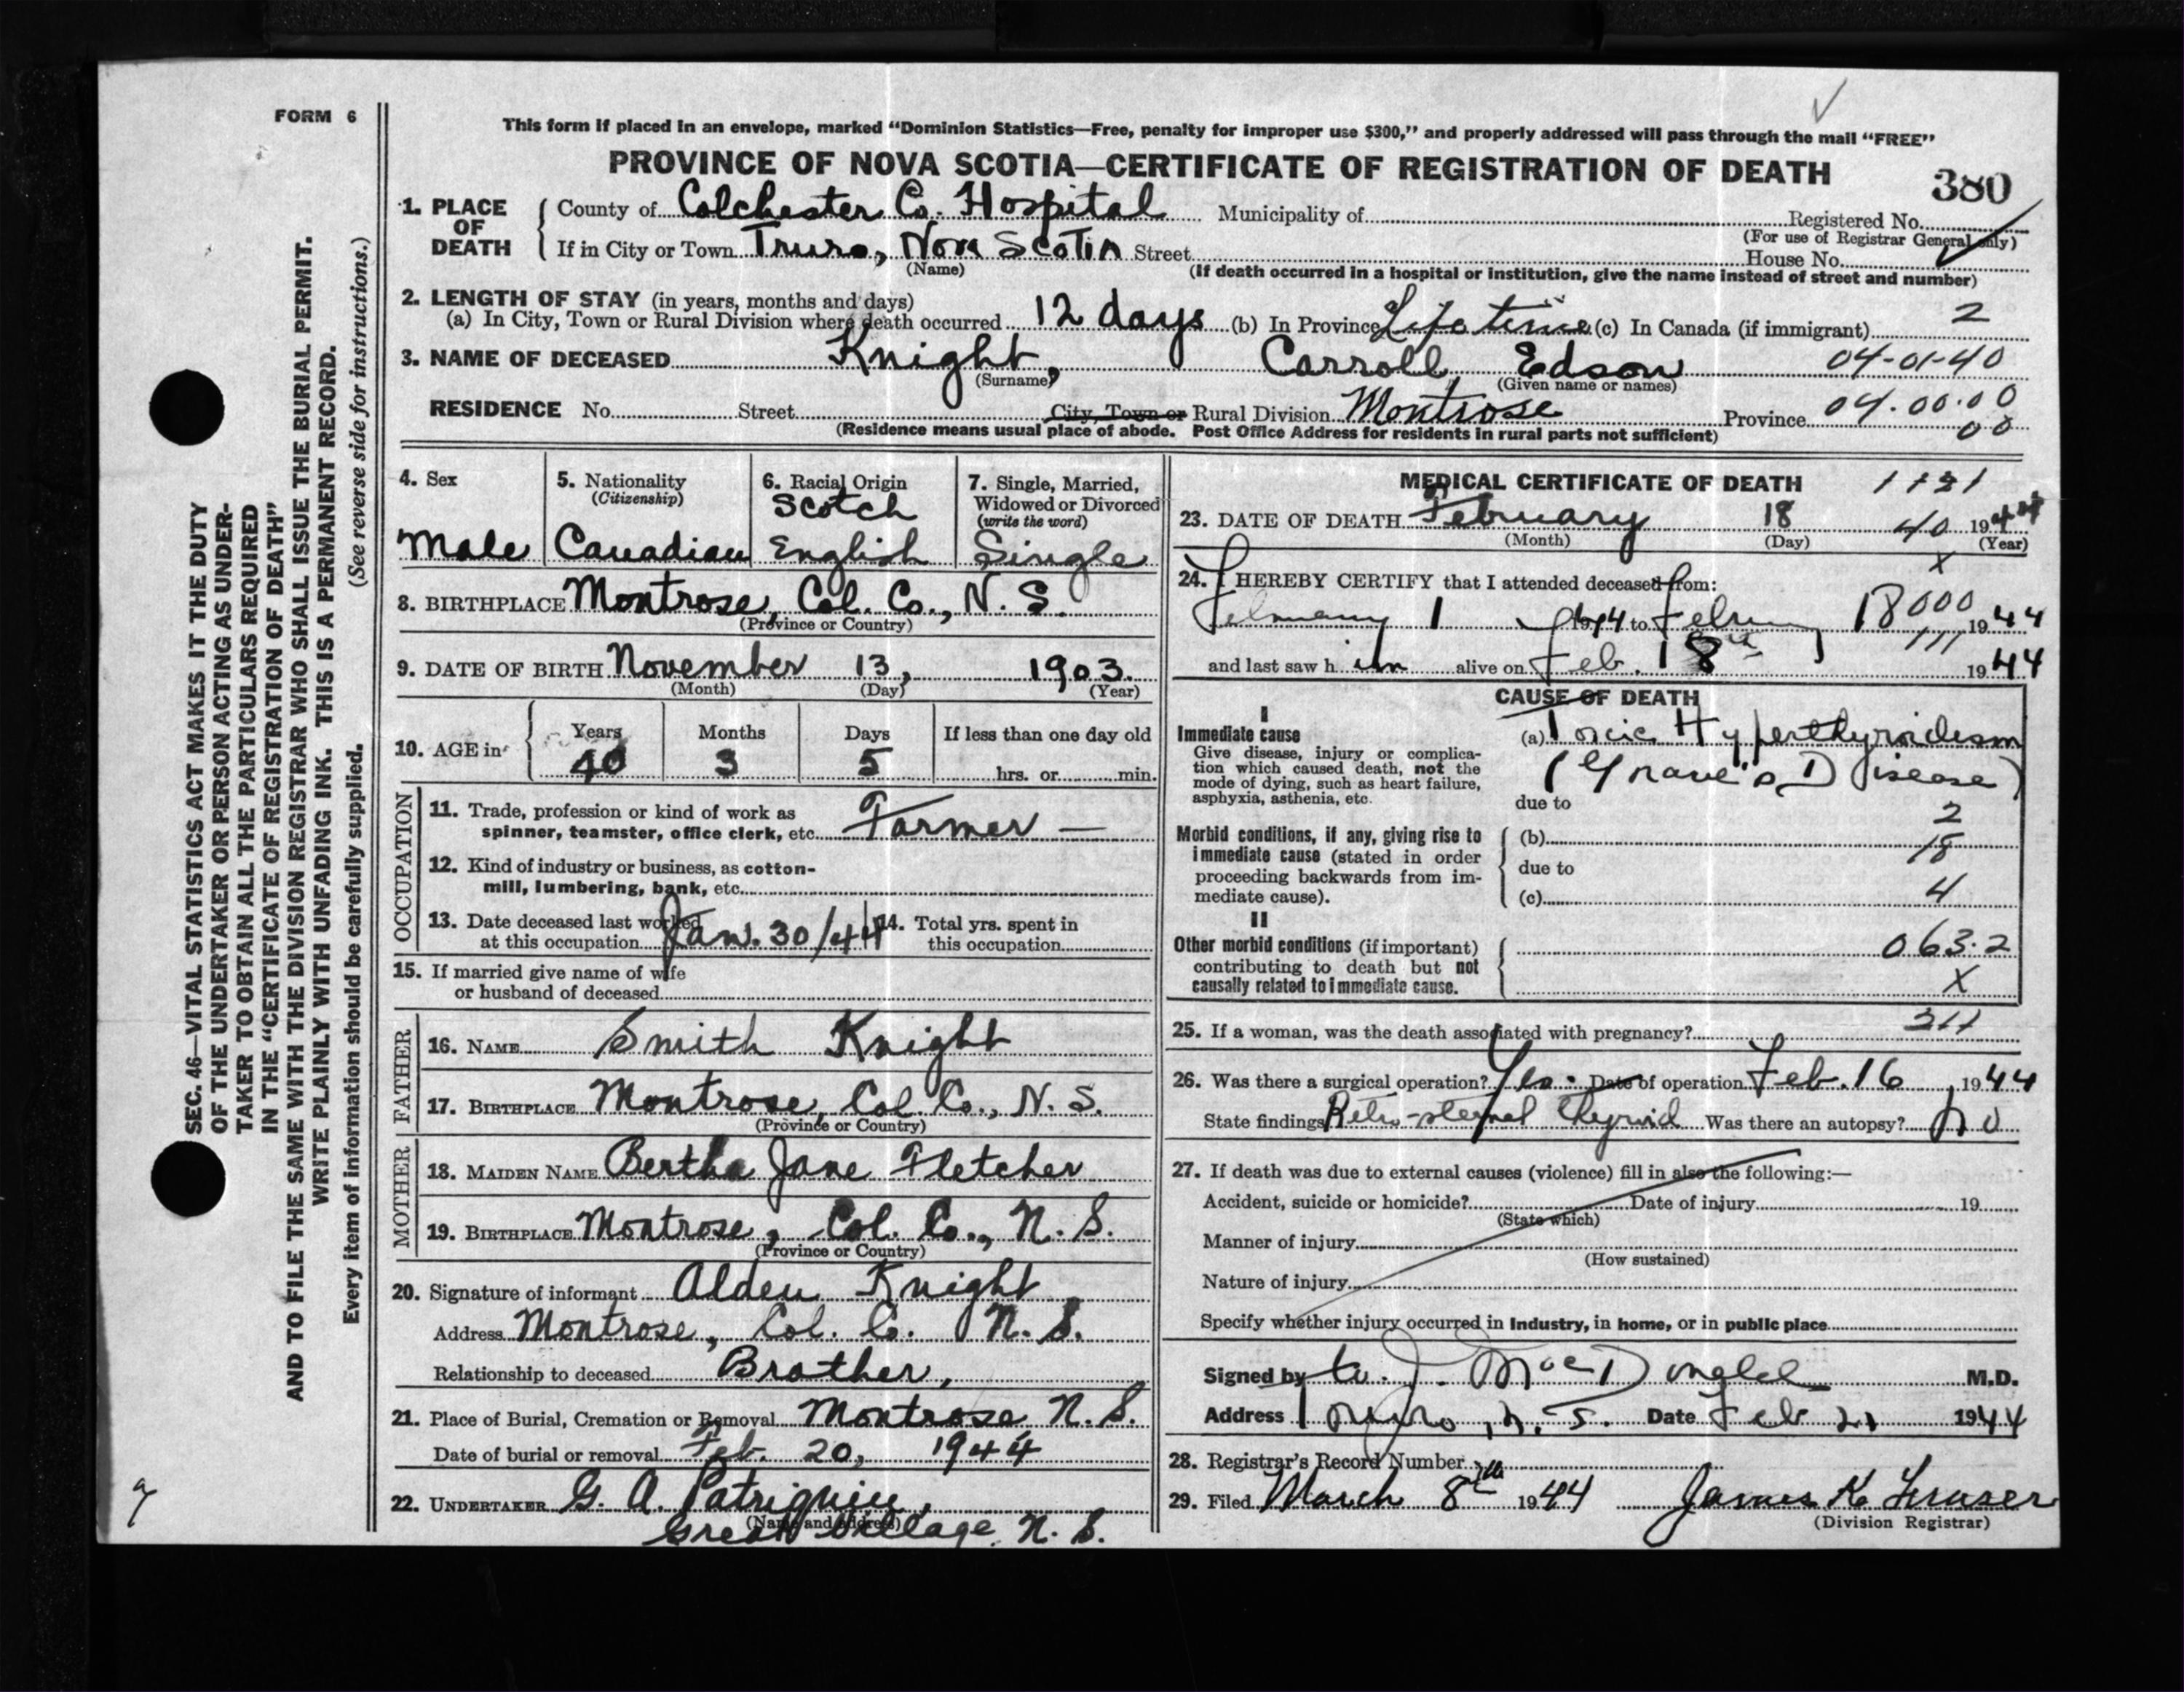 FORM 6
This form if placed in an envelope, marked "Dominion Statistics—Free, penalty for improper use $300," and properly addressed will pass through the mail "FREE"
PROVINCE OF NOVA SCOTIA—CERTIFICATE OF REGISTRATION OF DEATH
380
1. PLACE OF DEATH
County of Colchester Co. Hospital Municipality of Registered No.
(For use of Registrar General only)
If in City or Town Truro, Nova Scotia Street House No.
(Name) (If death occurred in a hospital or institution, give the name instead of street and number)
2. LENGTH OF STAY (in years, months and days)
(a) In City, Town or Rural Division where death occurred 12 days (b) In Province Life time (c) In Canada (if immigrant) 2
3. NAME OF DECEASED Knight, Carroll Edson 04-01-40
(Surname) (Given name or names)
RESIDENCE No. Street City, Town or Rural Division Montrose Province 04.00.00
00
(Residence means usual place of abode. Post Office Address for residents in rural parts not sufficient)
4. Sex
Male
5. Nationality
(Citizenship)
Canadian
6. Racial Origin
Scotch
English
7. Single, Married,
Widowed or Divorced
(write the word)
Single
8. BIRTHPLACE Montrose, Col. Co., N. S.
(Province or Country)
9. DATE OF BIRTH November 13, 1903.
(Month) (Day) (Year)
10. AGE in
Years Months Days If less than one day old
40 3 5 hrs. or min.
OCCUPATION
11. Trade, profession or kind of work as
spinner, teamster, office clerk, etc. Farmer —
12. Kind of industry or business, as cotton-
mill, lumbering, bank, etc.
13. Date deceased last worked
at this occupation Jan. 30/44
14. Total yrs. spent in
this occupation
15. If married give name of wife
or husband of deceased
FATHER
16. NAME Smith Knight
17. BIRTHPLACE Montrose, Col. Co., N. S.
(Province or Country)
MOTHER
18. MAIDEN NAME Bertha Jane Fletcher
19. BIRTHPLACE Montrose, Col. Co., N. S.
(Province or Country)
20. Signature of informant Alden Knight
Address Montrose, Col. Co. N. S.
Relationship to deceased Brother,
21. Place of Burial, Cremation or Removal Montrose N. S.
Date of burial or removal Feb. 20, 1944
22. UNDERTAKER G. A. Patriquin,
(Name and address)
Great Village, N. S.
MEDICAL CERTIFICATE OF DEATH
23. DATE OF DEATH February 18 40 1944
(Month) (Day) (Year)
X
24. I HEREBY CERTIFY that I attended deceased from:
February 1 1944 to 18 000 1944
111
and last saw h im alive on Feb. 18th 1944
CAUSE OF DEATH
I
Immediate cause
Give disease, injury or complica-
tion which caused death, not the
mode of dying, such as heart failure,
asphyxia, asthenia, etc.
(a) Toxic Hyperthyroidism
(Grave's Disease)
due to
2
Morbid conditions, if any, giving rise to
immediate cause (stated in order
proceeding backwards from im-
mediate cause).
(b) 18
due to
(c) 4
II
Other morbid conditions (if important)
contributing to death but not
causally related to immediate cause.
063.2
X
25. If a woman, was the death associated with pregnancy?
26. Was there a surgical operation? Yes. Date of operation Feb. 16, 1944
State findings Retro-sternal thyroid Was there an autopsy? No
27. If death was due to external causes (violence) fill in also the following:—
Accident, suicide or homicide? Date of injury 19
(State which)
Manner of injury
(How sustained)
Nature of injury
Specify whether injury occurred in Industry, in home, or in public place
Signed by J. MacDonald M.D.
Address Truro, N. S. Date Feb 21 1944
28. Registrar's Record Number
29. Filed March 8th 1944 James K. Fraser
(Division Registrar)
SEC. 46—VITAL STATISTICS ACT MAKES IT THE DUTY
OF THE UNDERTAKER OR PERSON ACTING AS UNDER-
TAKER TO OBTAIN ALL THE PARTICULARS REQUIRED
IN THE "CERTIFICATE OF REGISTRATION OF DEATH"
AND TO FILE THE SAME WITH THE DIVISION REGISTRAR WHO SHALL ISSUE THE BURIAL PERMIT.
WRITE PLAINLY WITH UNFADING INK. THIS IS A PERMANENT RECORD.
Every item of information should be carefully supplied. (See reverse side for instructions.)